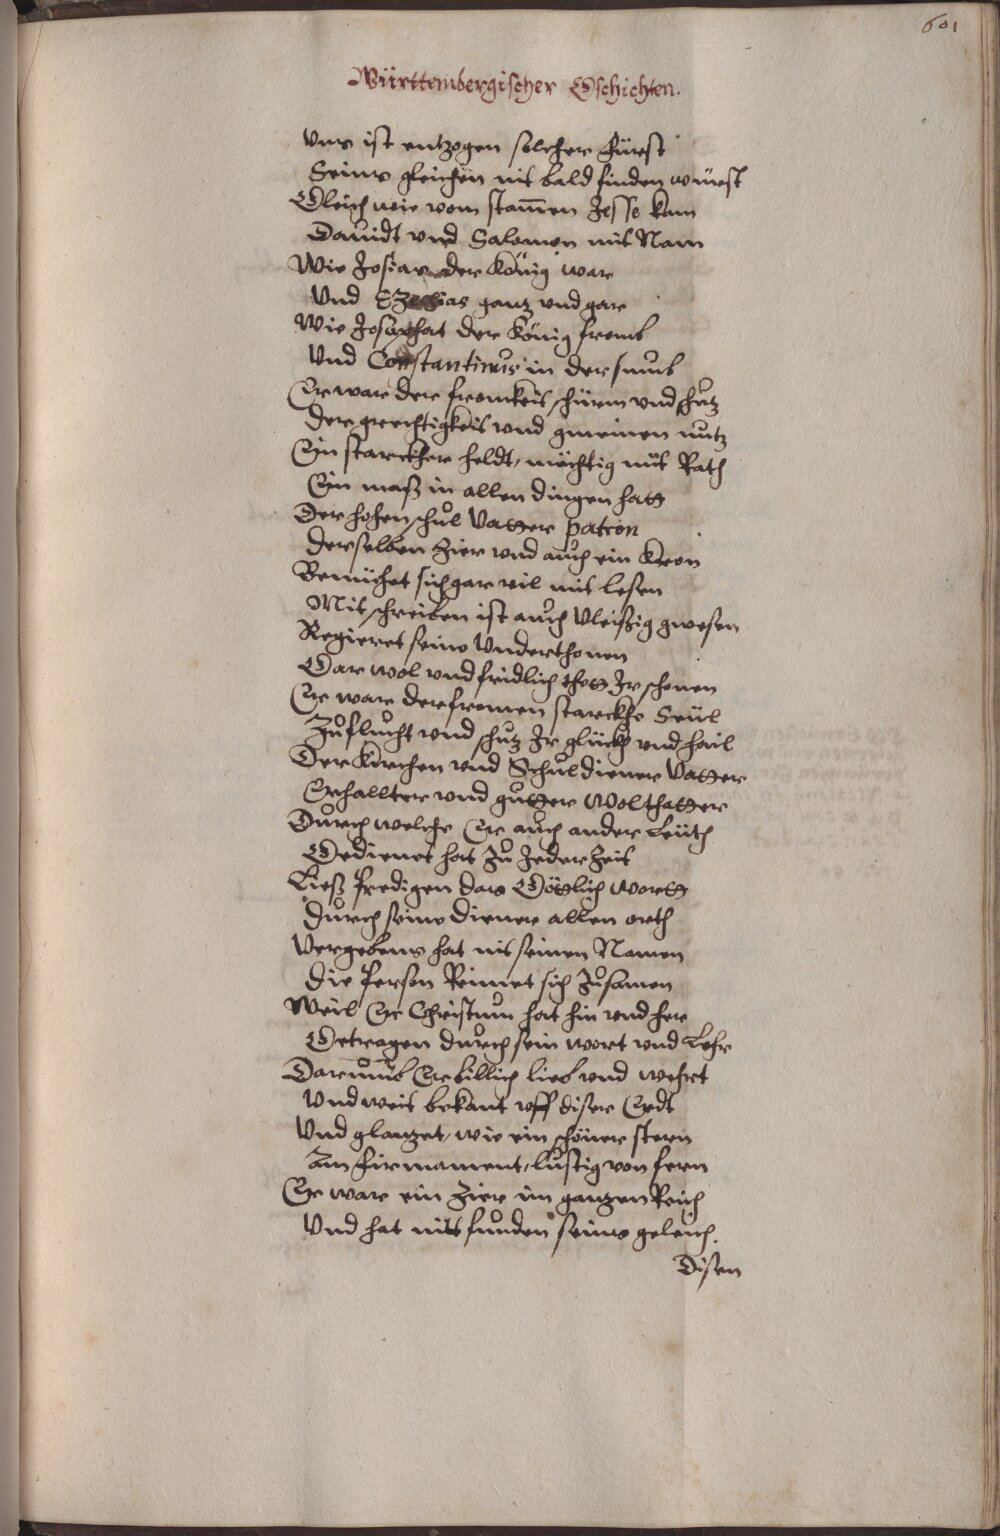 601
Württembergischer Gschichten.
Vns ist entzogen solcher Fürst
Seins gleichen nit bald finden würst
Gleich wie vom stam̄en Jesse kam
Dauidt vnd Salomon mit Nam
Wie Josias der König war
Vnd Ezechias gantz vnd gar
Wie Josaphat der König fromb
Vnd Constantinus in der sum̄b
Er war der fromkeit schirm vnd schutz
der grechtigkeit vnd gmeinen nutz
Ein starckher heldt, mächtig mit Rath
Ein maß in allen dingen hatt
Der hohen schul Vatter patron
derselben Zier vnd auch ein Kron
Bemühet sich gar vil mit lesen
Mit schreiben ist auch vleißig gwesen
Regieret seine Vnderthonen
Gar wol vnd fridlich thett Jr schonen
Er ware der fromen starckhe Seül
Zuflucht vnd schutz Jr glückh vnd hail
Der Kirchen vnd Schuldiener Vatter
Erhallter vnd gutter Wolthatter
Durch welche Er auch andere Leüth
Gedienet hat zu Jeder Zeit
Ließ Predigen das Göttlich wortt
durch seine diener allen orth
Vergebens hat nit seinen Namen
die Person Reimet sich zusamen
Weil Er Christum hat hin vnd her
Getragen durch sein wort vnd Lehr
Darumb Er billich lieb vnd wehrt
Vnd weit bekant vff diser Erdt
Vnd glanzet, wie ein schöner stern
Am firmament, lustig von fern
Er ware ein Zier im gantzen Reich
Vnd hat nitt funden seins geleich.
Disen